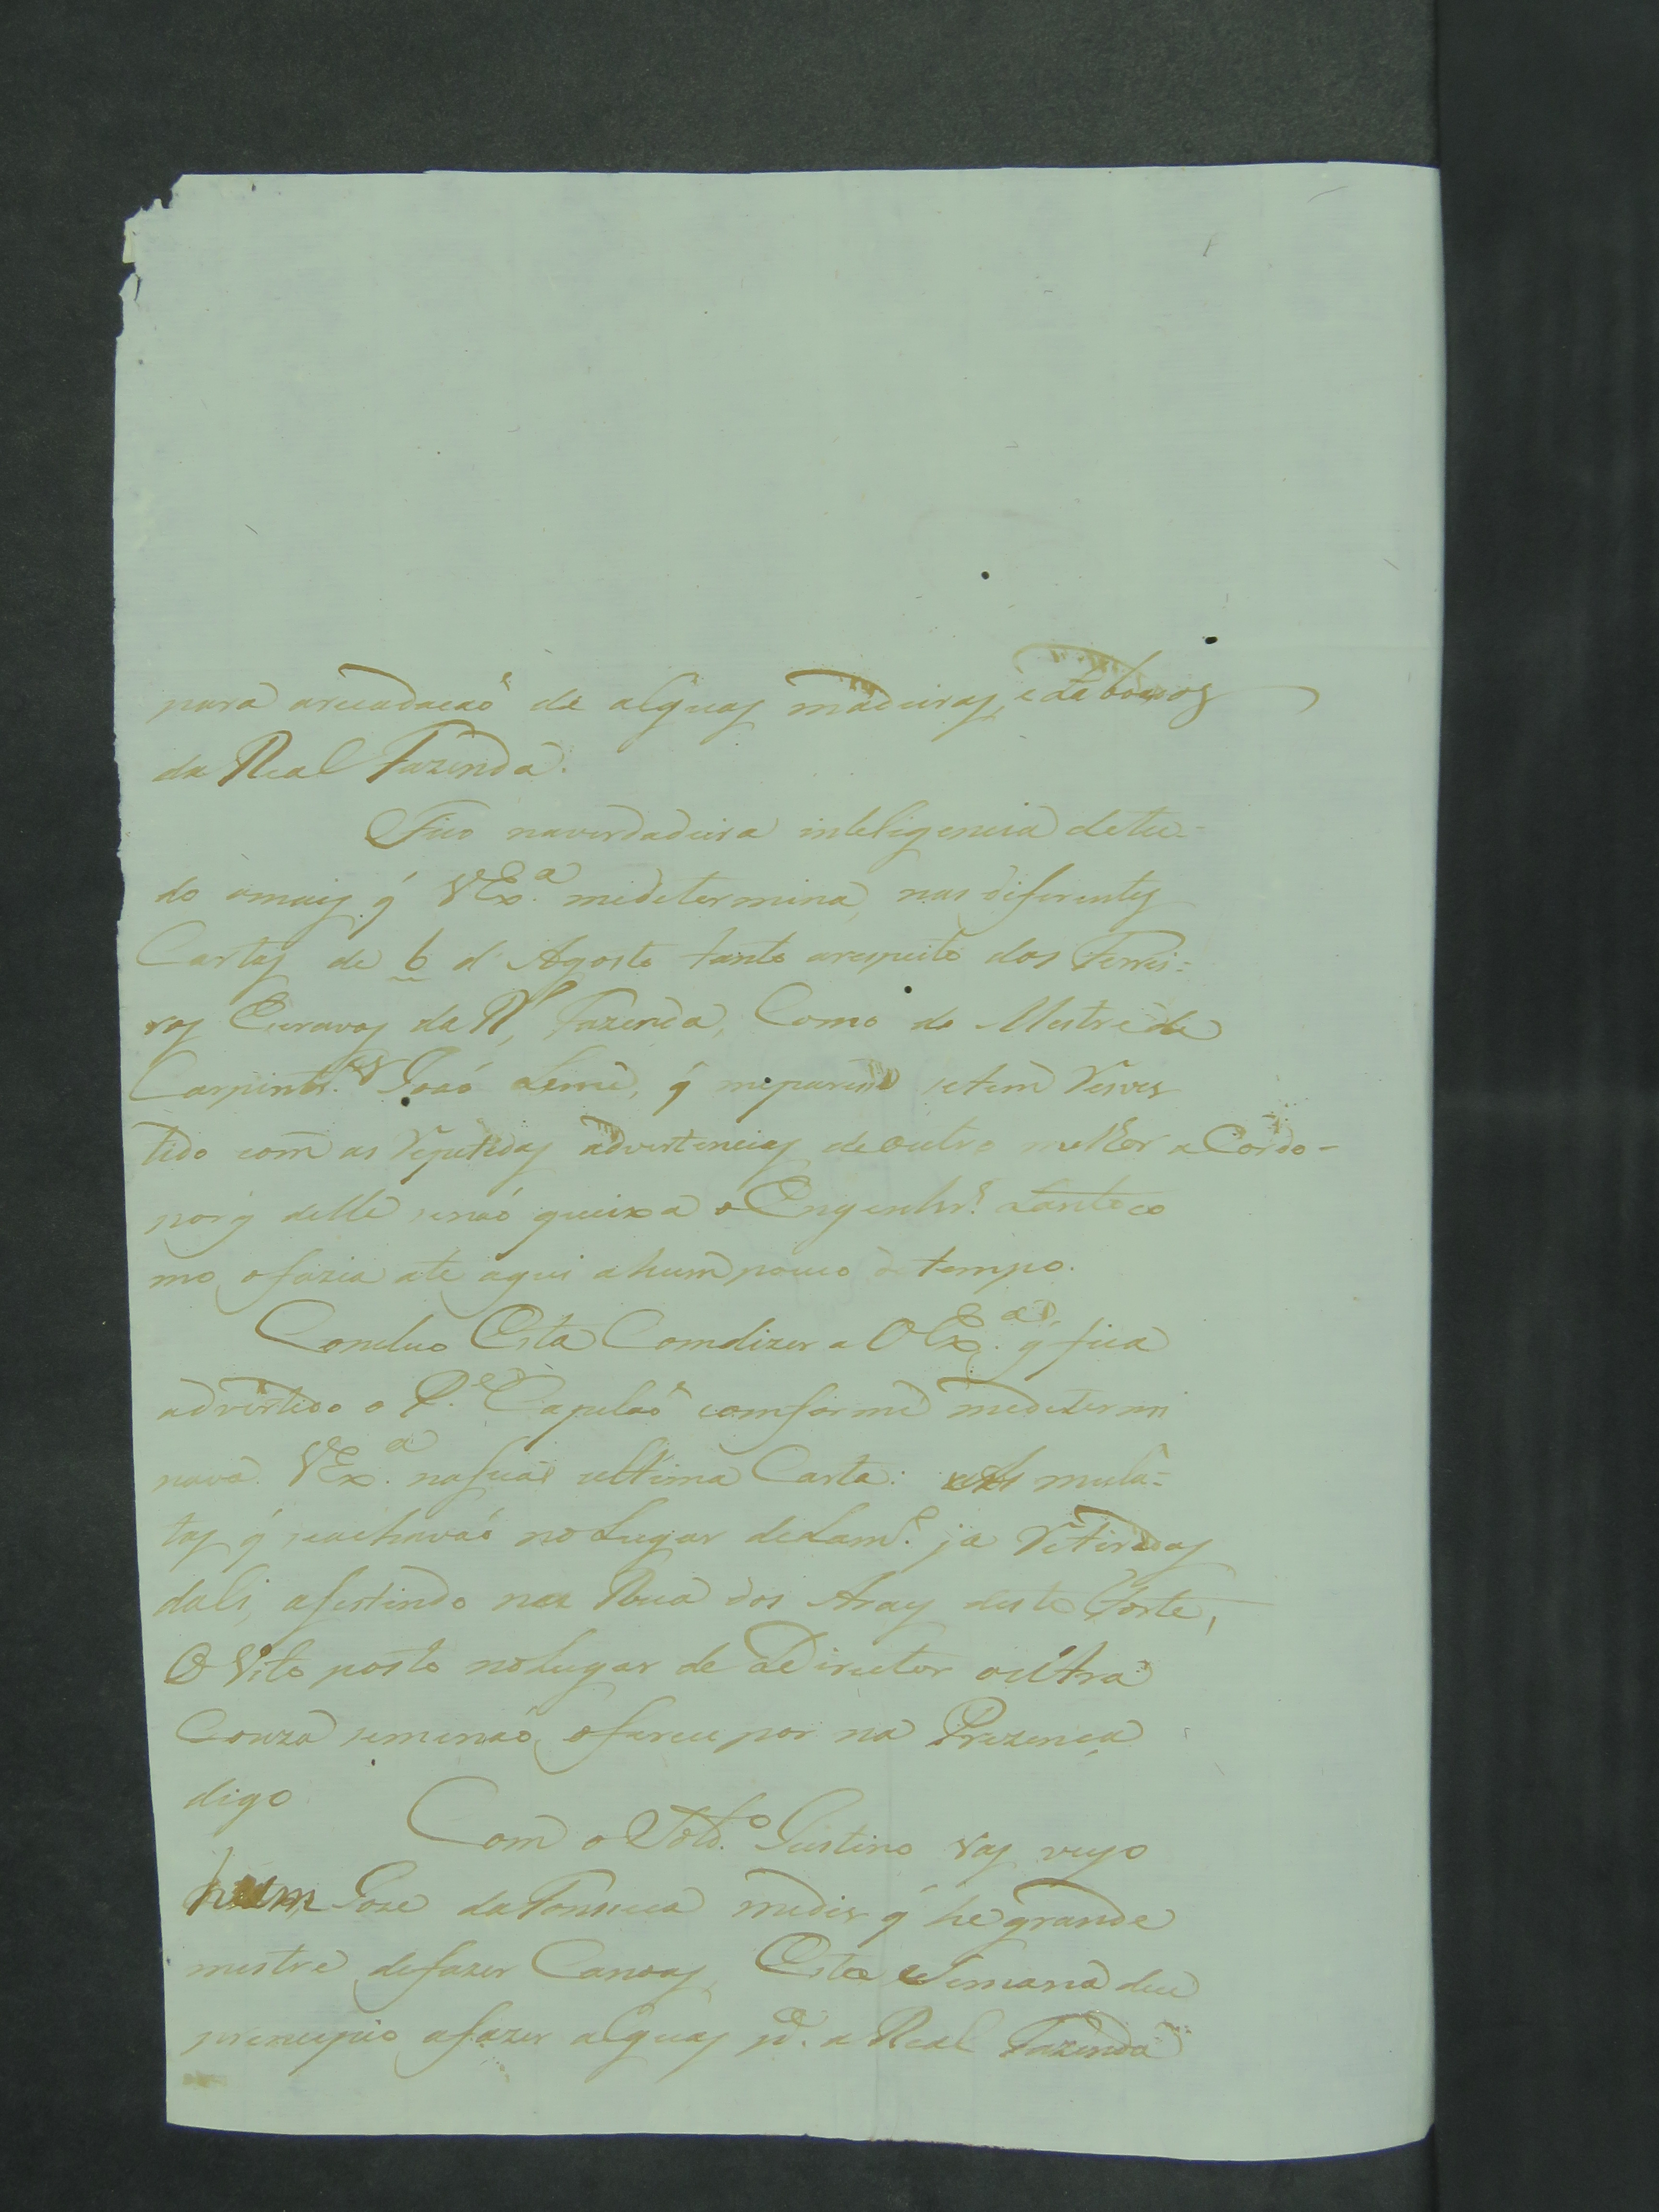 para arecadacaõ de alguas madeiras, e taboas
da Real Fazenda.
Fico naverdadeira inteligencia detu-
do omais q̃ VEx.ª medetermina, nas diferentes
Cartas de 6 d'Agosto tanto arespeito dos Ferrei-
ros Escravos da R.l Fazenda, Como do Mestre de
Carpintr.os Joaõ Leme, q̃ meparese setem Rever
tido com as Repetidas advertencias de outro melhor aCordo-
porq̃ delle senaõ queixa o Engenhr.o tanto co
mo ofazia ate aqui ahum pouco de tempo.
Concluo Esta Comdizer a VEx.ª q̃ fica
advertido o P.e Capelaõ comforme medetermi
nava VEx.ª nasua ultima Carta: As mula-
tas q̃ seachavaõ no Lugar de ja Retiradas
dali, asestindo na Rua dos Aray deste Forte,
O Vito posto noLugar de Director outra
Couza semenaõ oferece por na Prezença
digo
Com o Sold.o Justino Vas vejo
hum Joze daFonseca medis q̃ he grande
mestre defazer Canoas, Esta Semana deu
prencipio afazer alguas p.ª a Real Fazenda